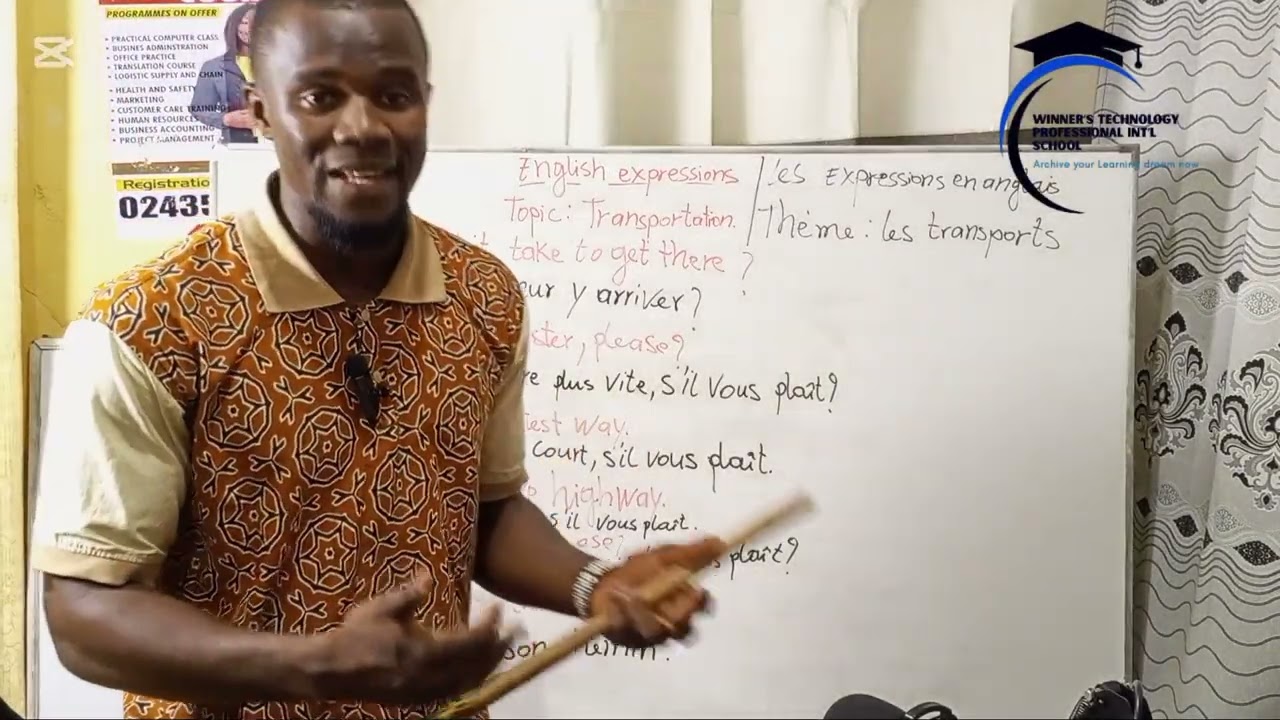 PROGRAMMES ON OFFER
• PRACTICAL COMPUTER CLASS
• BUSINES ADMINSTRATION
• OFFICE PRACTICE
• TRANSLATION COURSE
• LOGISTIC SUPPLY AND CHAIN
• HEALTH AND SAFETY
• MARKETING
• CUSTOMER CARE TRAINING
• HUMAN RESOURCES
• BUSINESS ACCOUNTING
• PROJECT MANAGEMENT
Registratio
0243
WINNER'S TECHNOLOGY
PROFESSIONAL INT'L
SCHOOL
Archive your Learning dream now
English expressions / Les Expressions en anglais
Topic: Transportation. / Thème: les transports
take to get there?
y arriver?
please?
plus vite, s'il vous plaît?
way.
Court, s'il vous plaît.
highway.
s'il vous plaît.
plaît?